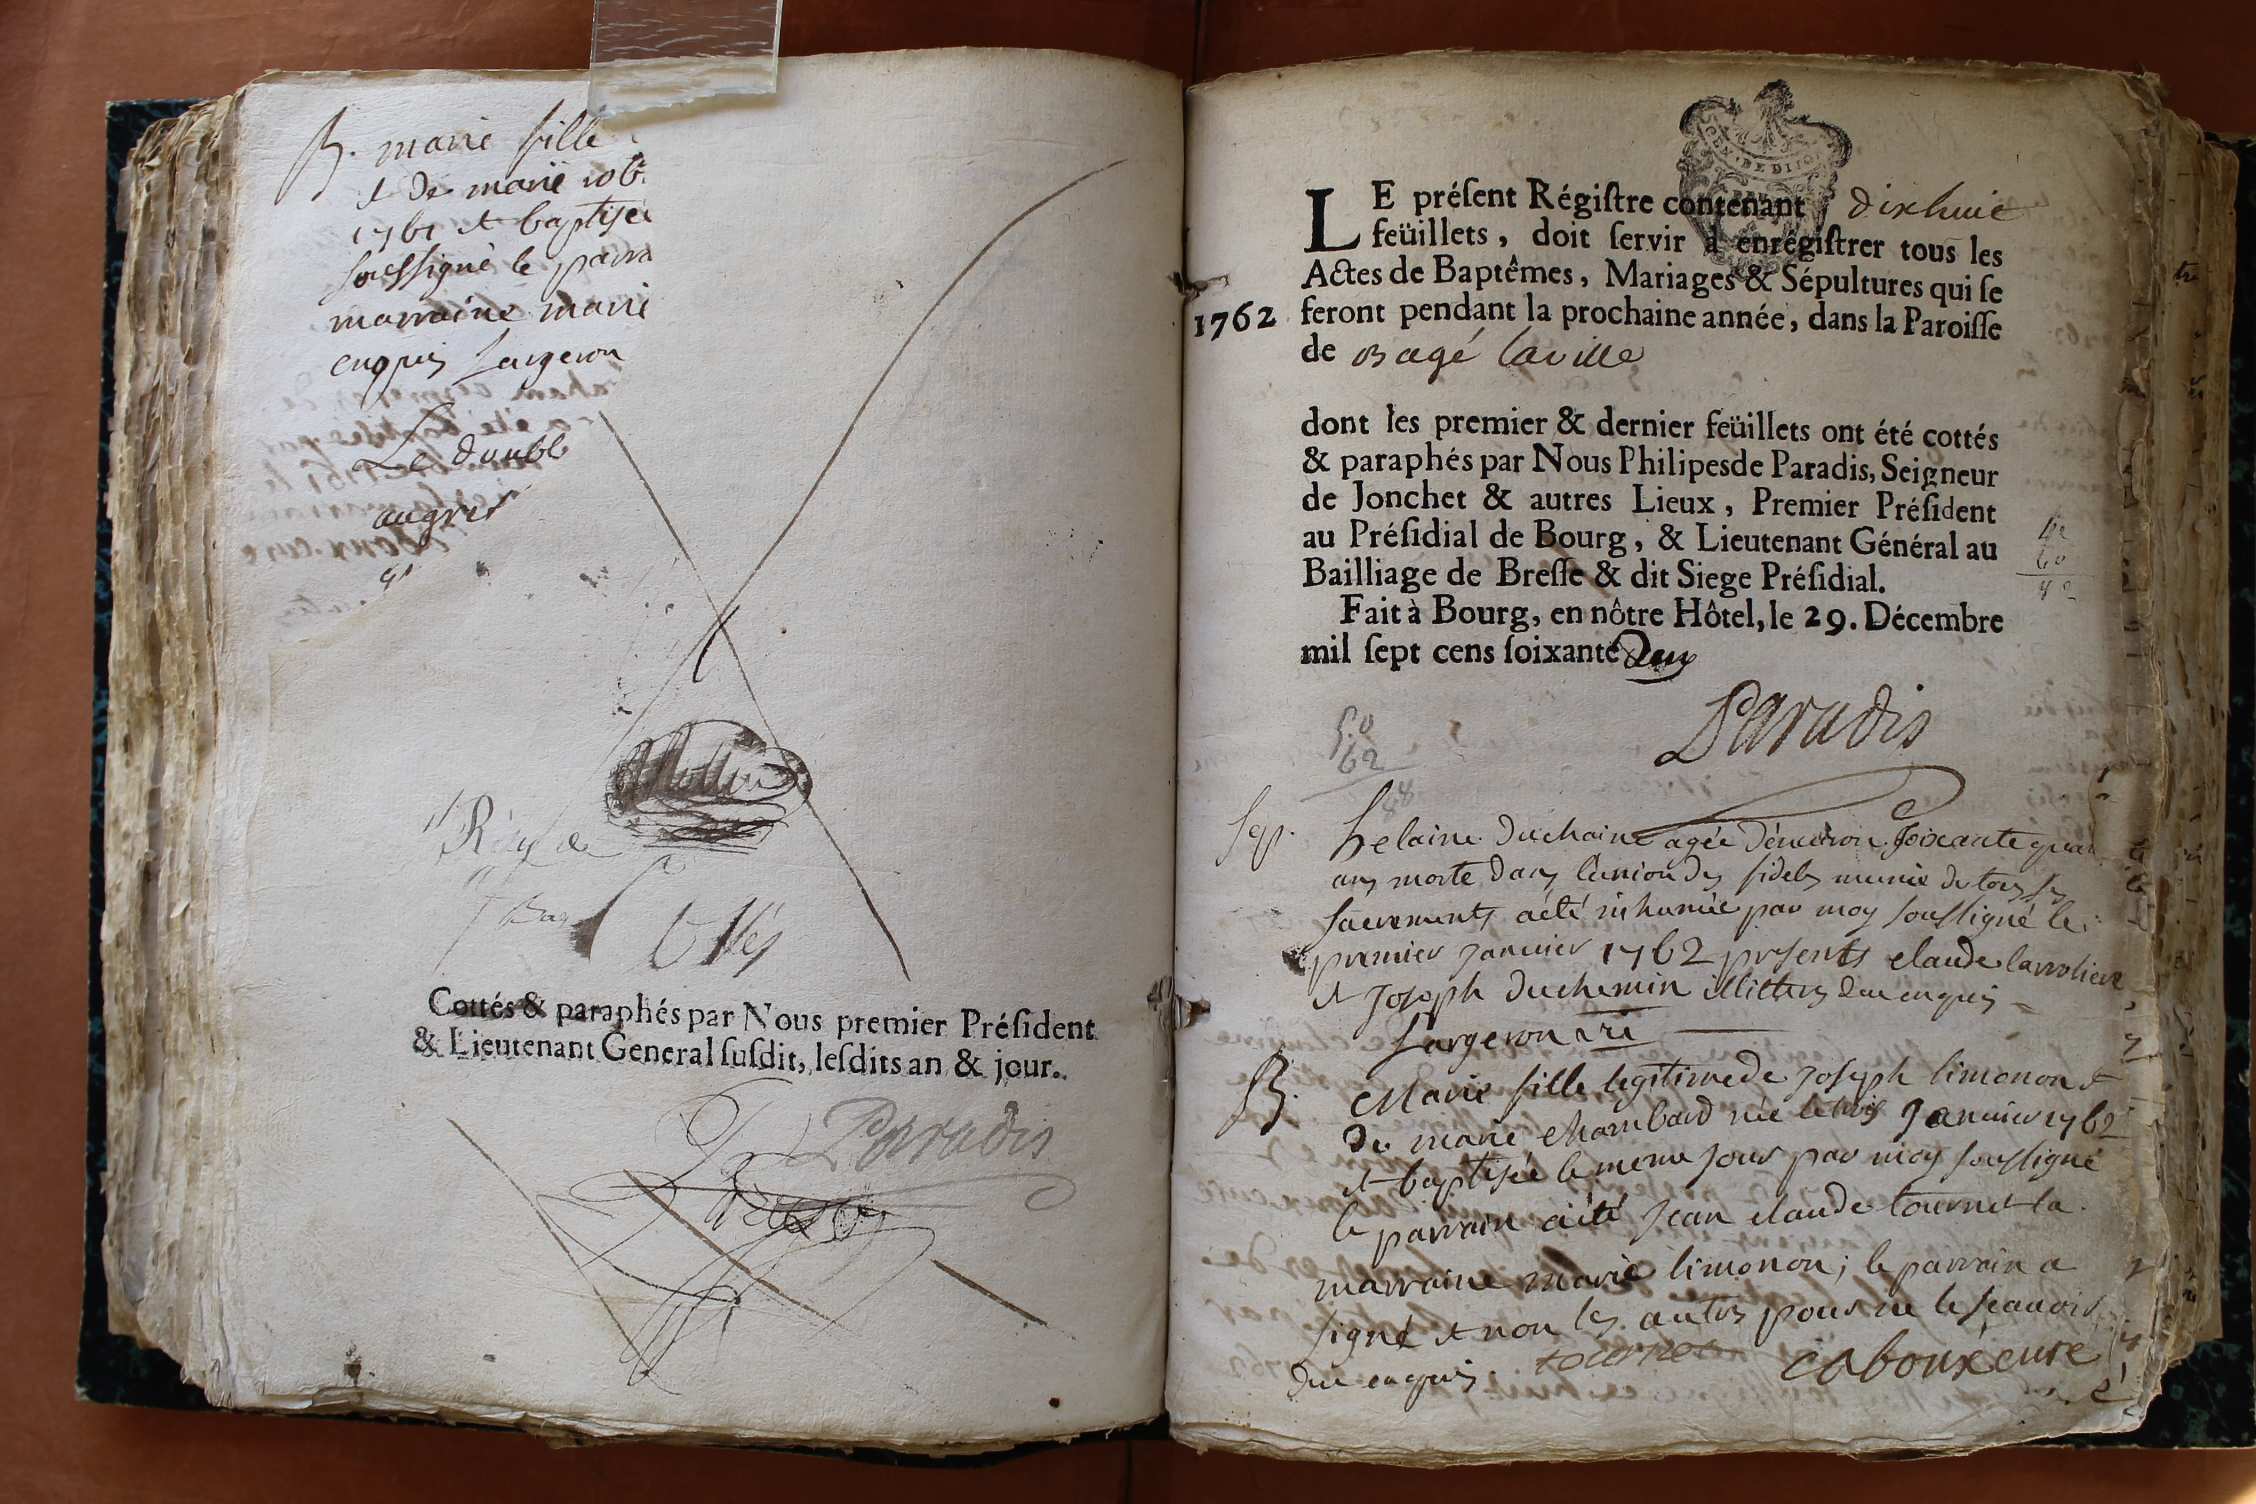 B. marie fille
& de marie rob
1761 & baptisée
soussigné le parra
marraine marie
enquis Largeron
Le double
augret
Rég de
Mollin
Cottés & paraphés par Nous premier Préſident
& Lieutenant General ſuſdit, leſdits an & jour.
Paradis
LE préſent Régiſtre contenant dixhuit
feüillets, doit ſervir à enrégiſtrer tous les
Actes de Baptêmes, Mariages & Sépultures qui ſe
1762 feront pendant la prochaine année, dans la Paroiſſe
de Bagé laville
dont les premier & dernier feüillets ont été cottés
& paraphés par Nous Philipes de Paradis, Seigneur
de Jonchet & autres Lieux, Premier Préſident
au Préſidial de Bourg, & Lieutenant Général au
Bailliage de Breſſe & dit Siege Préſidial.
Fait à Bourg, en nôtre Hôtel, le 29. Décembre
mil ſept cens ſoixante Deux
Paradis
Sep. helaine duchaine agée d'environ soixante quat
ans morte dans l'union des fideles munie de tous ses
sacrements a été inhumée par moy soussigné le
premier janvier 1762 presents claude larroliere
& joseph duchemin illitters due enquis
Largeron vic
B. Marie fille legitime de joseph limonon &
de marie chambard née le trois janvier 1762
& baptisée le meme jour par moy soussigné
le parrain a été jean claude tournet la
marraine marie limonon; le parrain a
signé & non les autres pour ne le scauoir
due enquis tournet caboux curé